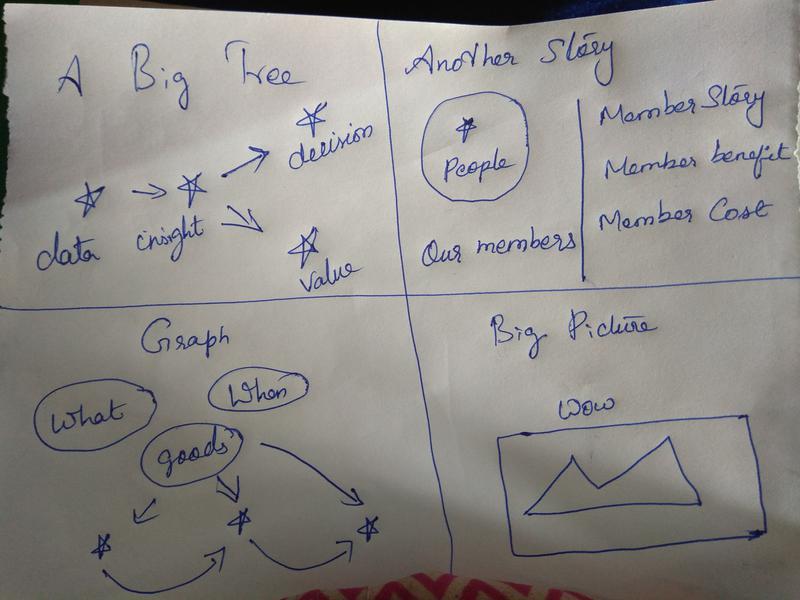 A Big Tree
decision
data
insight
value
Another Story
People
Our members
Member Story
Member benefit
Member Cost
Graph
What
When
goods
Big Picture
Wow